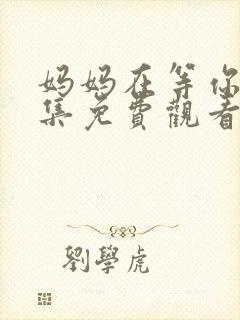 妈妈在等你
集免費觀看
劉學虎